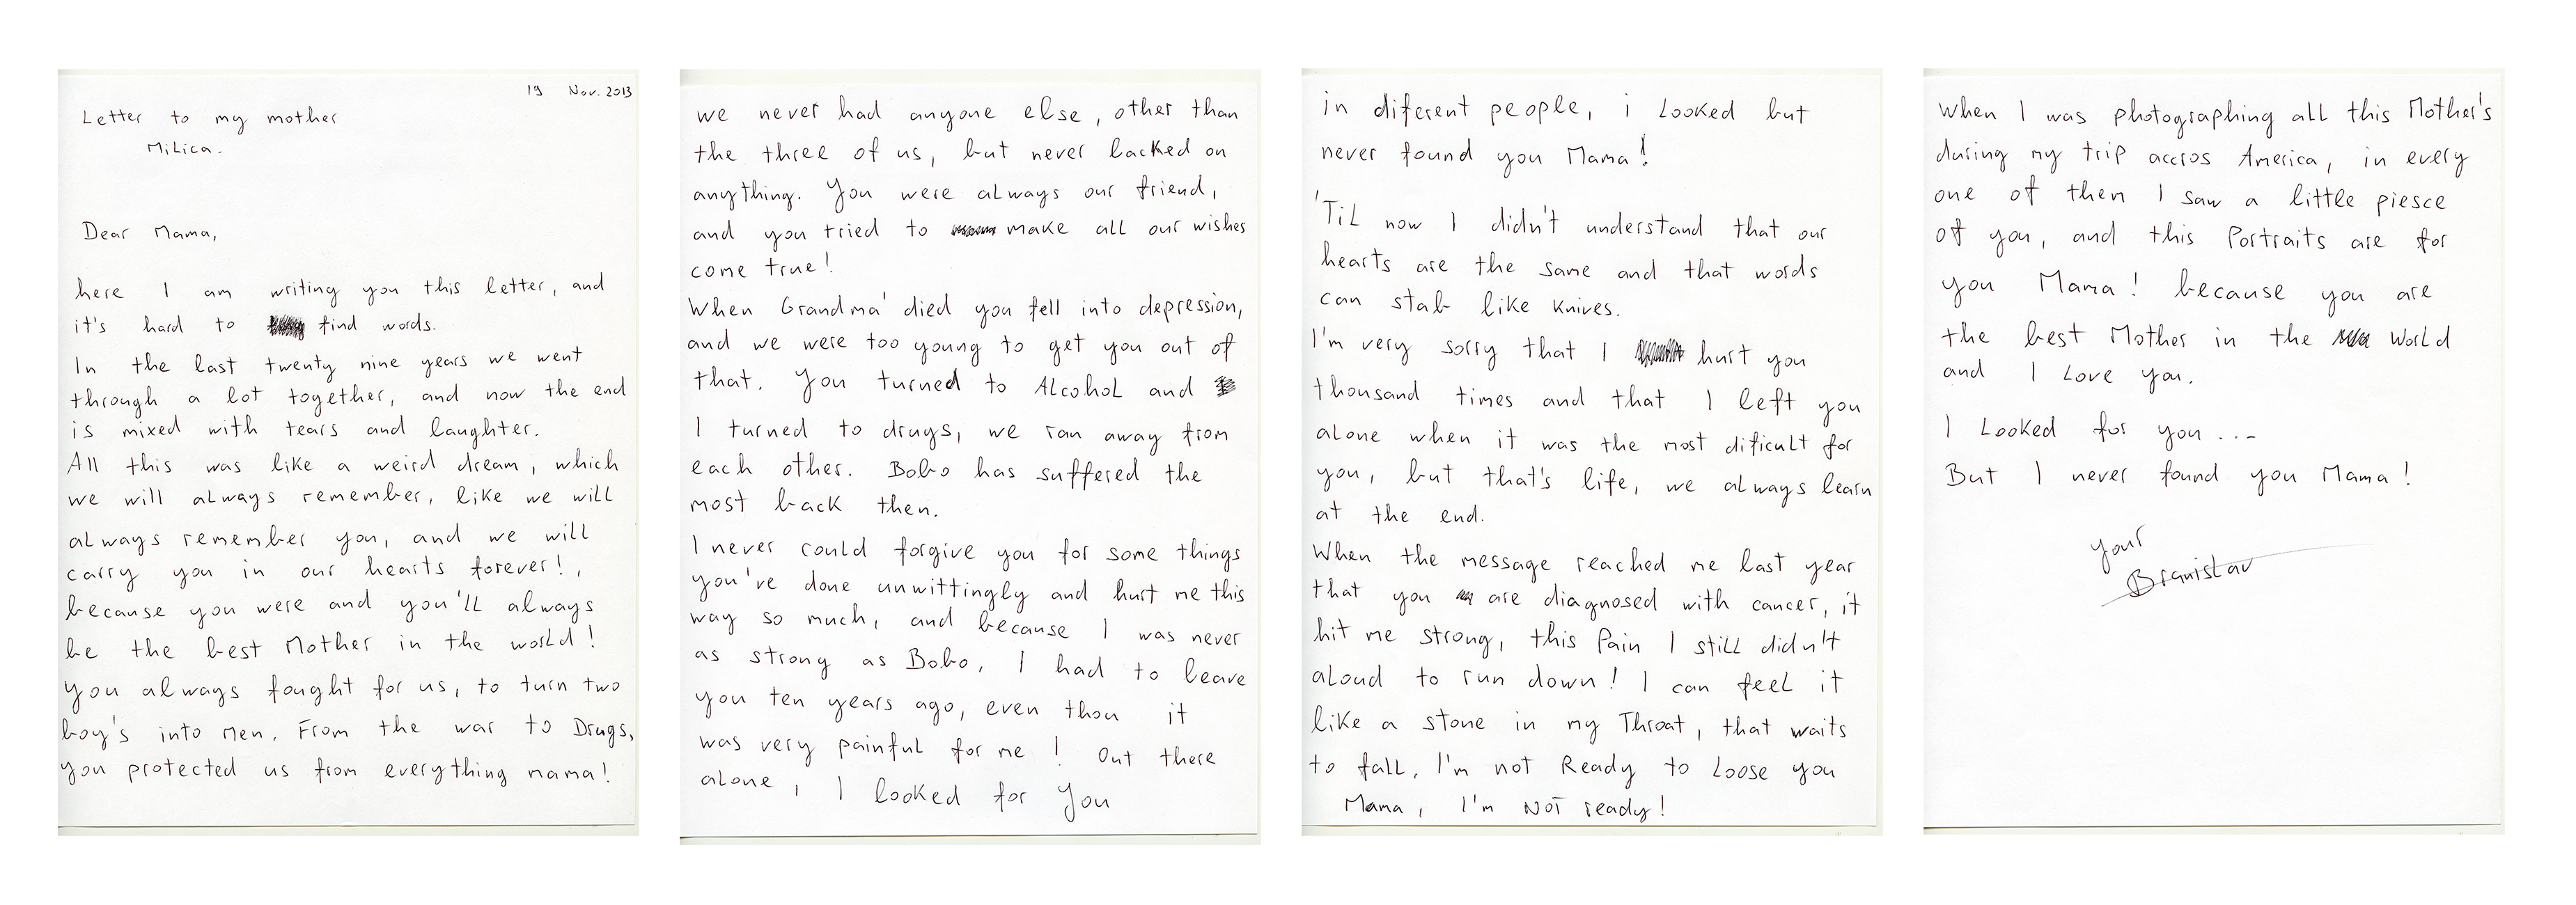 19 Nov. 2013
Letter to my mother
Milica.
Dear Mama,
here I am writing you this letter, and
it's hard to find words.
In the last twenty nine years we went
through a lot together, and now the end
is mixed with tears and laughter.
All this was like a weird dream, which
we will always remember, like we will
always remember you, and we will
carry you in our hearts forever!,
because you were and you'll always
be the best Mother in the world!
You always fought for us, to turn two
boy's into Men. From the war to Drugs,
you protected us from everything mama!
we never had anyone else, other than
the three of us, but never lacked on
anything. You were always our friend,
and you tried to make all our wishes
come true!
When Grandma' died you fell into depression,
and we were too young to get you out of
that. You turned to Alcohol and
I turned to drugs, we ran away from
each other. Bobo has suffered the
most back then.
I never could forgive you for some things
you've done unwittingly and hurt me this
way so much, and because I was never
as strong as Bobo, I had to leave
you ten years ago, even thou it
was very painful for me! Out there
alone, I looked for You
in diferent people, i Looked but
never found you Mama!
'Til now I didn't understand that our
hearts are the same and that words
can stab like Knives.
I'm very sorry that I hurt you
thousand times and that I left you
alone when it was the most dificult for
you, but that's life, we always learn
at the end.
When the message reached me last year
that you are diagnosed with cancer, it
hit me strong, this Pain I still didn't
aloud to run down! I can feel it
like a stone in my Throat, that waits
to fall. I'm not Ready to Loose you
Mama, I'm NOT ready!
When I was photographing all this Mother's
during my trip accros America, in every
one of then I saw a little piesce
of you, and this Portraits are for
you Mama! because you are
the best Mother in the World
and I Love you.
I Looked for you...
But I never found you Mama!
your
Branislav